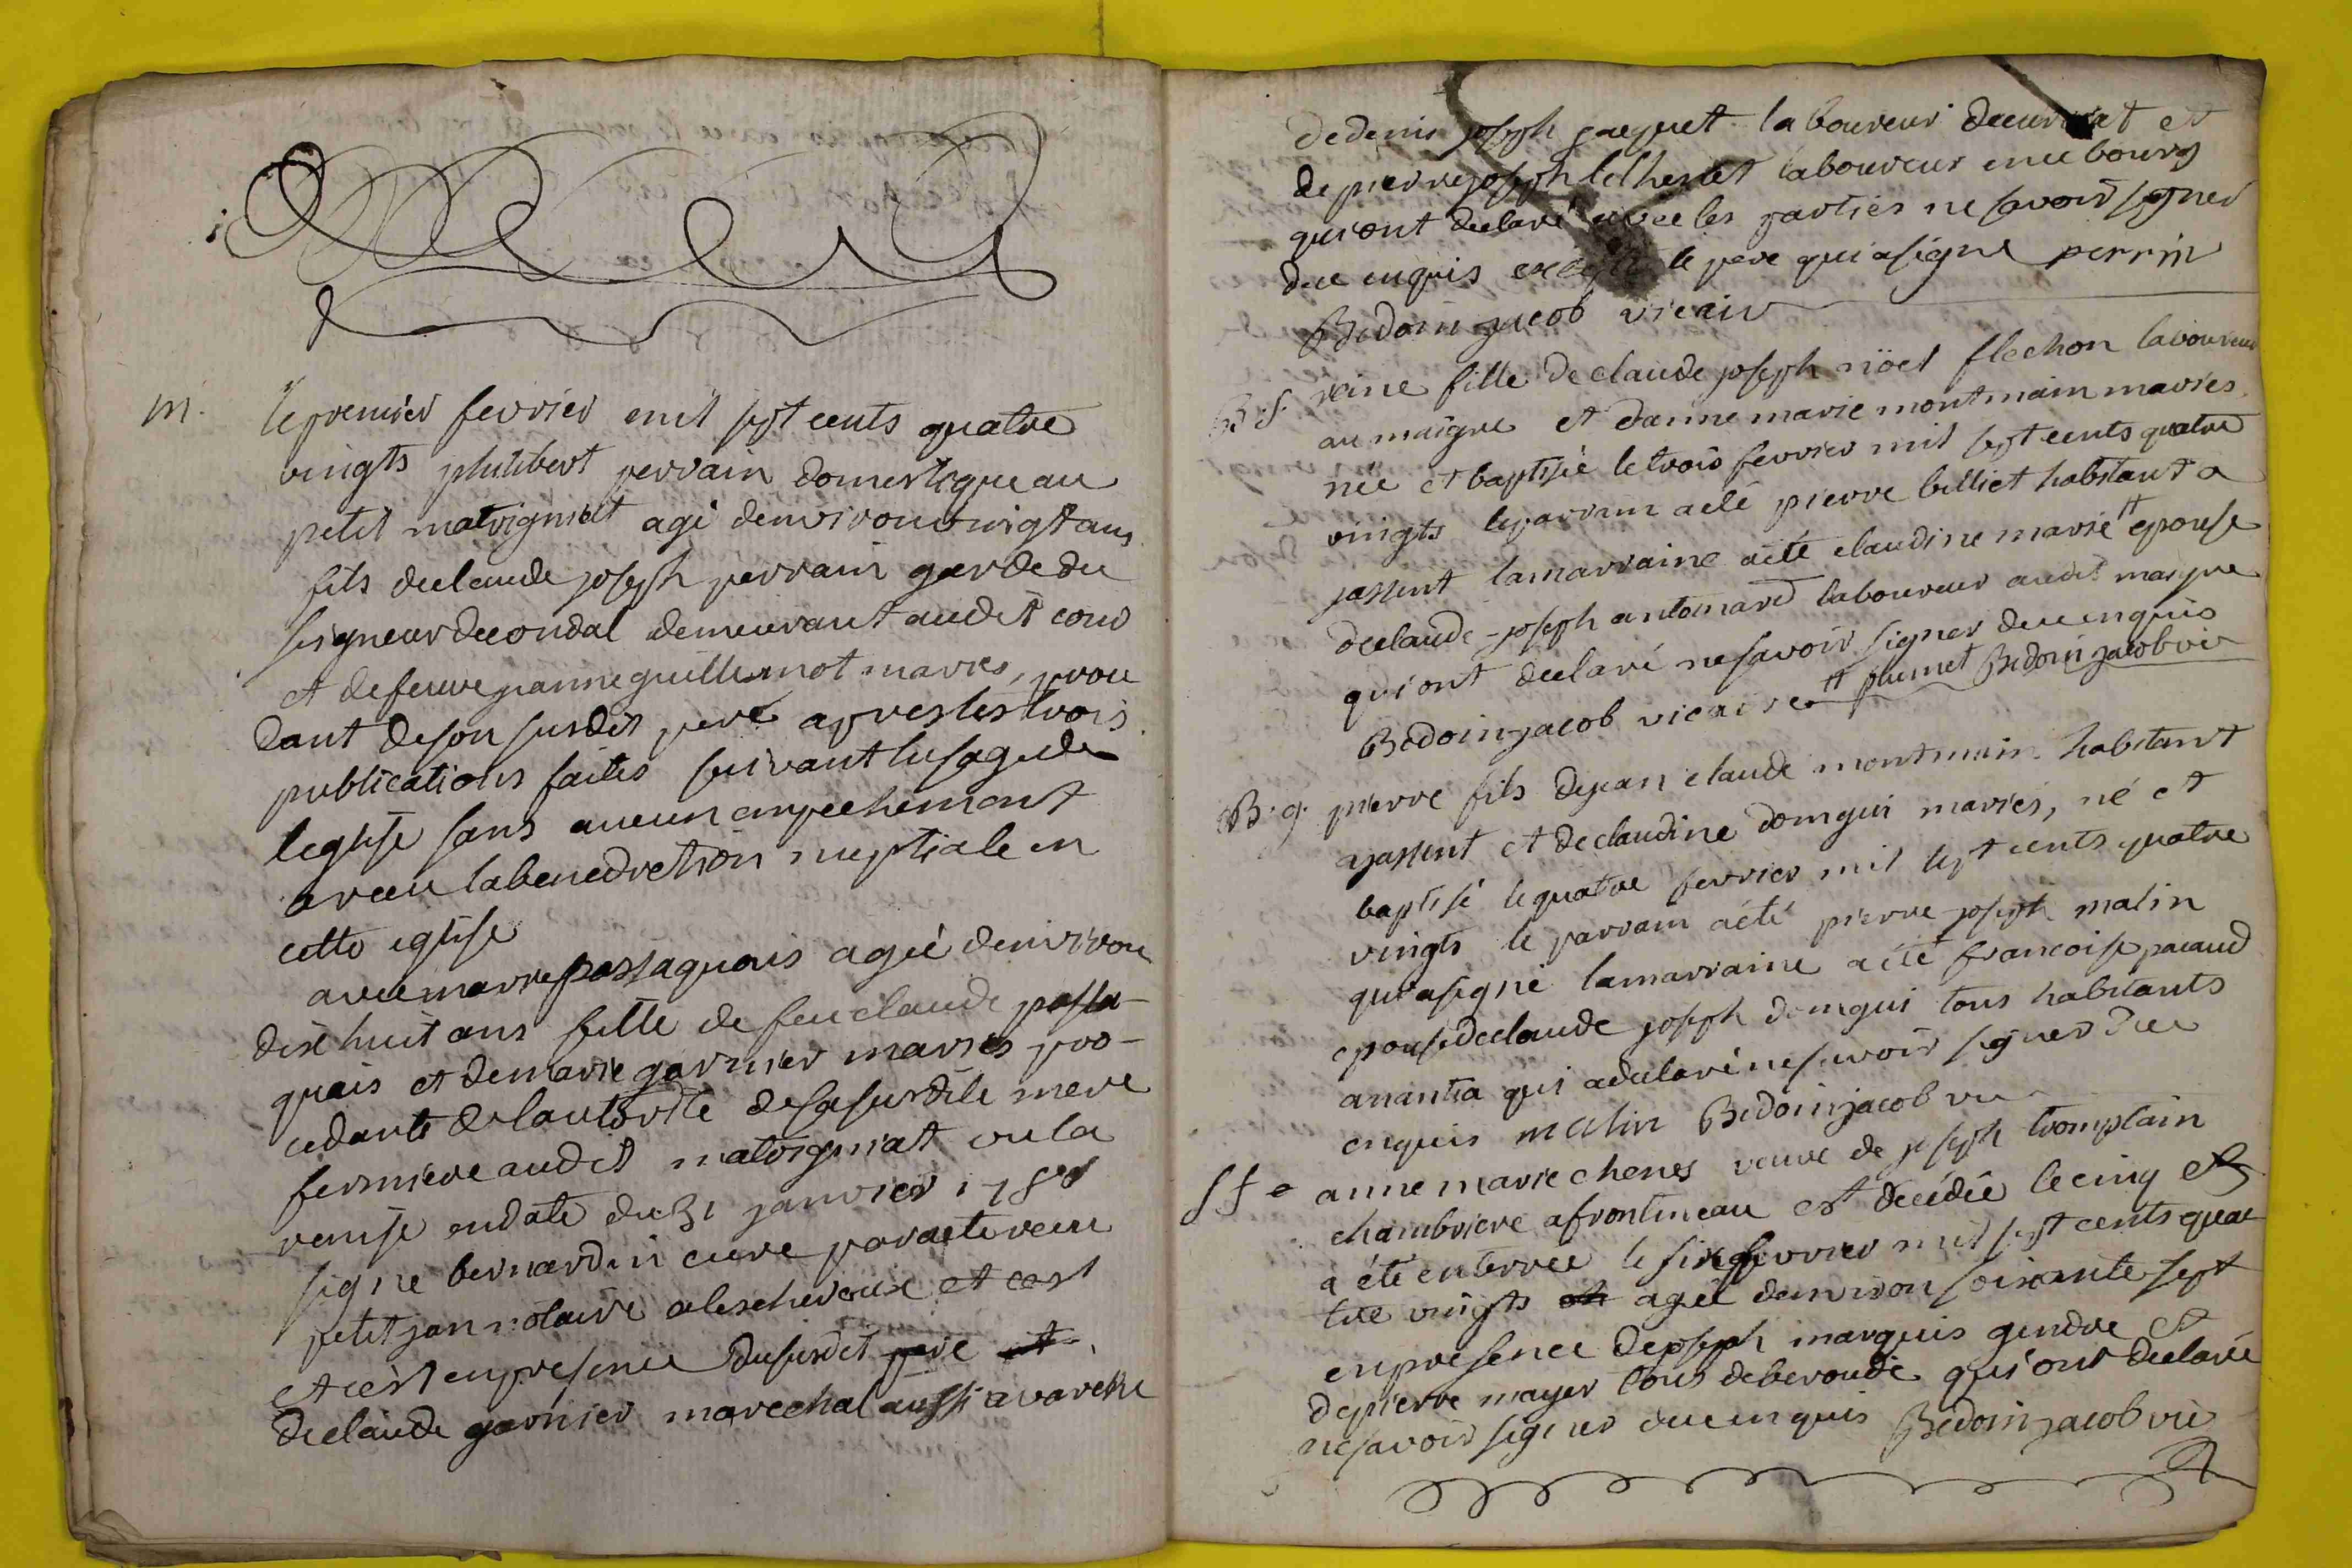 m.
le premier fevrier mil sept cents quatre
vingts philibert perrain domestique au
petit matrigniat agé denviron vingt ans
fils declaude joseph perrain garde du
seigneur decondal demeurant audit cond
et defeuve jeanne guillemot maries, proce
dant deson susdit pere apres les trois
publications faites suivant lusagede
leglise sans aucun empechement
a recu labenediction nuptiale en
cette eglise
avec marie passaquais agée denviron
dix huit ans fille de feu claude passa-
quais et demarie garnier maries pro-
cedante delautorité desasusdite mere
fermiere audit matrigniat vu la
remise endate du 31 janvier 1780
signé bernardin cure par acte recu
petitjan notaire
et cest
et cest enpresence dususdit pere et
declaude garnier marechal aussi a varenne
dedenis joseph jacquet laboureur
et
de pierre joseph labhestet laboureur ence bourg
qui ont declaré avec les parties ne savoir signer
dece enquis excepté le pere qui a signé perrin
Bidoin jacob vicair
B. f. reine fille declaude joseph nöel flechon laboureur
au maigre et danne marie montmain maries
née et baptisée letrois fevrier mil sept cents quatre
vingts leparrain aété pierre billiet habitant a
jassent lamarraine aété claudine marie # epouse
declaude-joseph antoinard laboureur audit maigre
qui ont declaré nesavoir signer dece enquis
Bidoin jacob vicaire # plumet Bidoin jacob vic
B. g. pierre fils dejean claude montmain habitant
ajassent et declaudine domgui maries, né et
baptisé lequatre fevrier mil sept cents quatre
vingts le parrain aété pierre joseph malin
qui asigné lamarraine aété francoise pacaud
epouse declaude joseph domgui tous habitants
anantia qui adeclaré nesavoir signer dece
enquis malin Bidoin jacob vic
Sf e anne marie chenes veuve de joseph tromplain
chambriere afrontineau est decédée lecinq et
a été enterrée le six fevrier mil sept cents quat
tre vingts agée denviron soixante sept
enpresence dejoseph marquis gendre et
depierre mayer tous deberoude qui ont declaré
nesavoir signer dece enquis Bidoin jacob vic